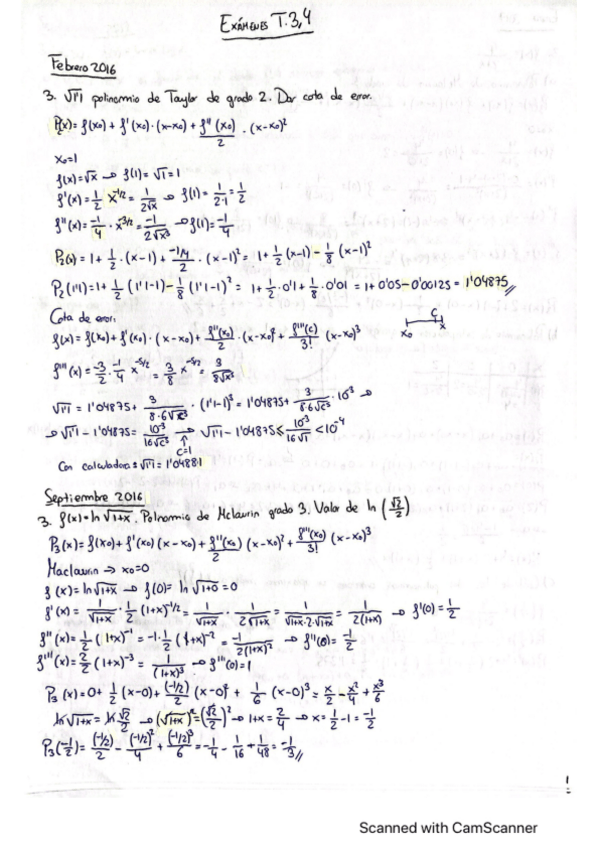 EXÁMENES T.3,4
Febrero 2016
3. √1'1 polinomio de Taylor de grado 2. Dar cota de error.
P₂(x) = f(x₀) + f'(x₀)·(x-x₀) + f''(x₀)/2 · (x-x₀)²
x₀=1
f(x)=√x → f(1)=√1=1
f'(x)=1/2 x^(-1/2) = 1/(2√x) → f(1)=1/(2·1)=1/2
f''(x)=-1/4 · x^(-3/2) = -1/(2√x³) → f(1)=-1/4
P₂(x)=1+1/2·(x-1)+(-1/4)/2·(x-1)² = 1+1/2(x-1)-1/8(x-1)²
P₂(1'1)=1+1/2(1'1-1)-1/8(1'1-1)² = 1+1/2·0'1+1/8·0'01 = 1+0'05-0'00125 = 1'04875
Cota de error.
f(x)=f(x₀)+f'(x₀)·(x-x₀)+f''(x₀)/2·(x-x₀)²+f'''(c)/3!·(x-x₀)³
x₀ c x
f'''(x)=-3/2·-1/4 x^(-5/2) = 3/8 x^(-5/2) = 3/(8√x⁵)
√1'1 = 1'04875 + 3/(8·6√c⁵)·(1'1-1)³ = 1'04875 + 3/(8·6√c⁵)·10⁻³ →
→ √1'1 - 1'04875 = 10⁻³/(16√c⁵) → √1'1 - 1'04875 ≤ 10⁻³/(16√1) < 10⁻⁴
c=1
Con calculadora: √1'1 = 1'04881
Septiembre 2016
3. f(x)=ln√(1+x). Polnomio de Mclaurin grado 3. Valor de ln(√2/2)
P₃(x)=f(x₀)+f'(x₀)(x-x₀)+f''(x₀)/2(x-x₀)²+f'''(x₀)/3!(x-x₀)³
Maclaurin → x₀=0
f(x)=ln√(1+x) → f(0)=ln√(1+0)=0
f'(x)=1/√(1+x)·1/2(1+x)^(-1/2) = 1/√(1+x)·1/(2√(1+x)) = 1/(√(1+x)·2·√(1+x)) = 1/(2(1+x)) → f'(0)=1/2
f''(x)=1/2(1+x)⁻¹ = -1·1/2(1+x)⁻² = -1/(2(1+x)²) → f''(0)=-1/2
f'''(x)=2/2(1+x)⁻³ = 1/(1+x)³ → f'''(0)=1
P₃(x)=0+1/2(x-0)+(-1/2)/2(x-0)²+1/6(x-0)³ = x/2-x²/4+x³/6
ln√(1+x)=ln√2/2 → (√(1+x))²=(√2/2)² → 1+x=2/4 → x=1/2-1=-1/2
P₃(-1/2)=(-1/2)/2-(-1/2)²/4+(-1/2)³/6=-1/4-1/16+1/48=-1/3
1
Scanned with CamScanner